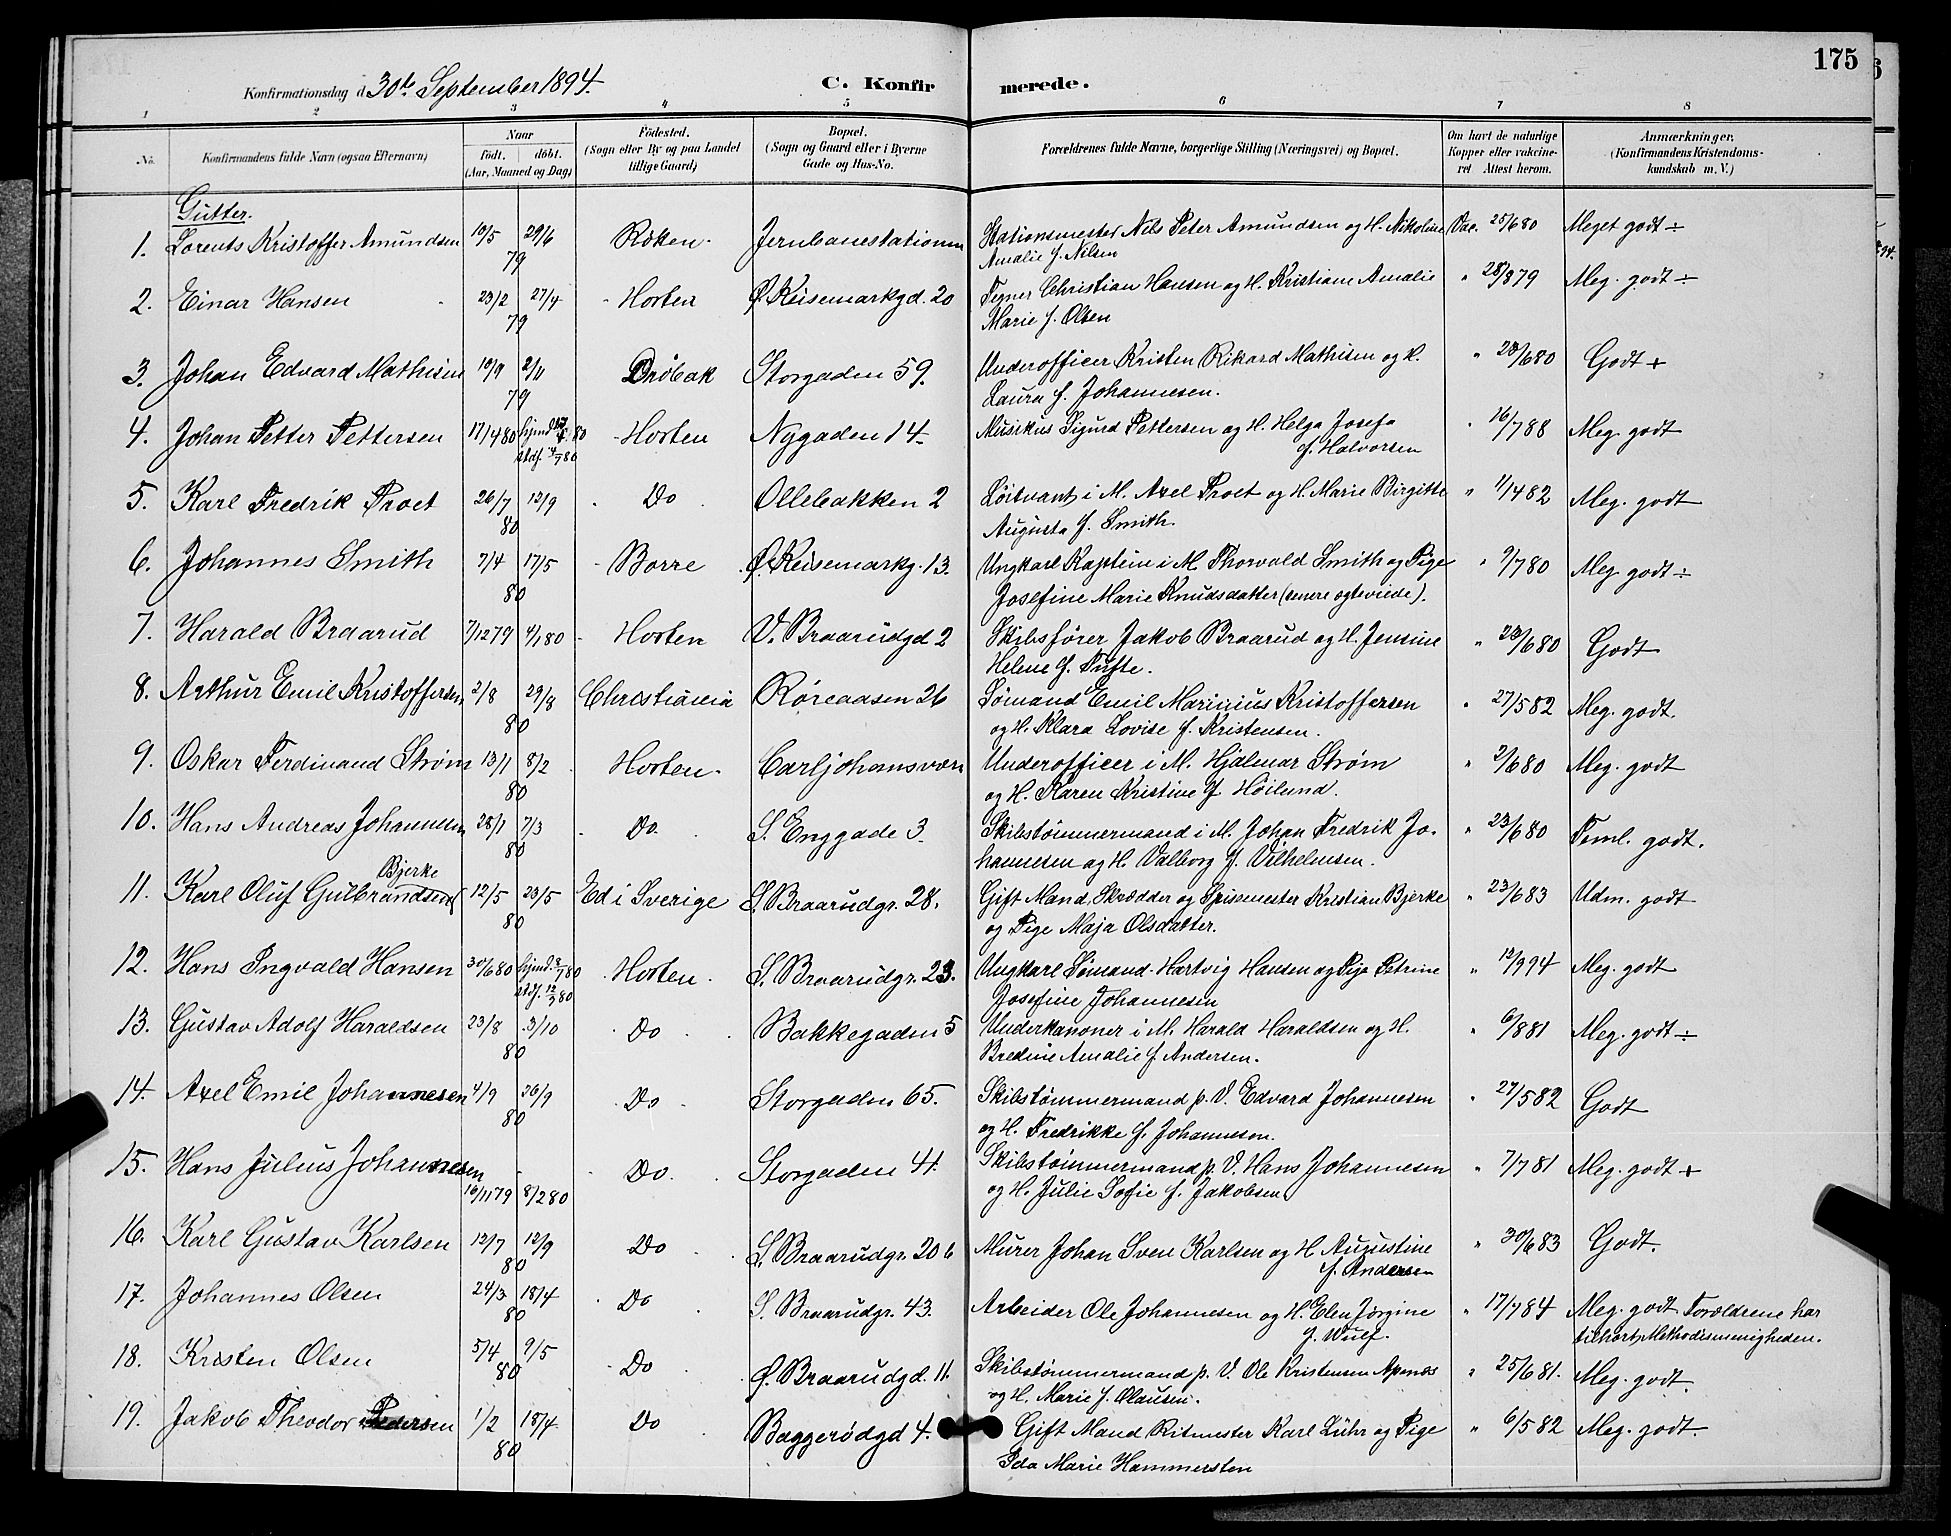 175
Konfirmationsdag d. 30te September 1894.
C. Konfirmerede.
1 2 3 4 5 6 7 8
No. Konfirmandens fulde Navn (ogsaa Efternavn) Naar født. døbt. (Aar, Maaned og Dag) Fødested. (Sogn eller By og paa Landet tillige Gaard) Bopæl. (Sogn og Gaard eller i Byerne Gade og Hus-No. Forældrenes fulde Navne, borgerlige Stilling (Næringsvei) og Bopæl. Om havt de naturlige Kopper eller vakcineret Attest herom. Anmærkninger. (Konfirmandens Kristendomskundskab m. V.)
Gutter.
1. Lorents Kristoffer Amundsen 10/5 29/6 79 Røken. Jernbanestationen Stationsmester Nils Peter Amundsen og H. Nikoline Vac. 25/6 80 Meget godt ÷
Amalie f. Nilsen
2. Einar Hansen 23/2 27/4 79 Horten Ø. Keisemarkgd. 20 Tegner Christian Hansen og H. Kristiane Amalie " 28/8 79 Meg. godt ÷
Marie f. Olsen
3. Johan Edvard Mathisen 10/9 2/11 79 Drøbak Storgaden 59. Underofficer Kristen Rikard Mathisen og H. " 28/6 80 Godt +
Laura f. Johannesen.
4. Johan Petter Pettersen 17/4 80 hjmd. 80 Horten Nygaden 14. Musikus Sigurd Pettersen og H. Helga Josefa " 16/7 88 Meg. godt
stdf. 4/7 80 f. Halvorsen
5. Karl Fredrik Proet 26/7 12/9 80 Do Ollebakken 2 Løitnant i M. Axel Proet og H. Marie Birgitte " 1/14 82 Meg. godt
Augusta f. Smith.
6. Johannes Smith 7/4 17/5 80 Borre Ø. Keisemarkg. 13. Ungkarl Kaptein i M. Thorvald Smith og Pige " 9/7 80 Meg. godt ÷
Josefine Marie Knudsdatter (senere ægteviede).
7. Harald Braarud 7/12 79 4/1 80 Horten V. Braarudgd 2 Skibsfører Jakob Braarud og H. Jensine " 23/6 80 Godt
Helene f. Tufte.
8. Arthur Emil Kristoffersen 2/8 29/8 80 Christiania Røreaasen 26 Sømand Emil Marinius Kristoffersen " 27/5 82 Meg. godt.
og H. Klara Lovise f. Kristensen.
9. Oskar Ferdinand Strøm 13/1 8/2 80 Horten. Carljohansværn Underofficer i M. Hjalmar Strøm " 2/6 80 Meg. godt
og H. Karen Kristine f. Høilund.
10. Hans Andreas Johannesen 28/1 7/3 80 Do. S. Enggade 3. Skibstømmermand i M. Johan Fredrik Jo- " 23/6 80 Teml. godt.
hannesen og H. Valborg f. Vilhelmsen.
Bjerke
11. Karl Oluf Gulbrandsen 12/5 23/5 80 Ed i Sverige S. Braarudgr. 28. Gift Mand, Skrædder og Spisemester Kristian Bjerke " 23/6 83 Udm. godt
og Pige Maja Olsdatter.
12. Hans Ingvald Hansen 30/6 80 hjmd. 80 Horten. S. Braarudgr. 23. Ungkarl Sømand Hartvig Hansen og Pige Petrine " 12/9 94 Meg. godt
stdf. 80 Josefine Johannesen
13. Gustav Adolf Haraldsen 23/8 3/10 80 Do Bakkegaden 5 Underkanoner i M. Harald Haraldsen og H. " 6/8 81 Meg. godt ÷
Bredine Amalie f. Andersen.
14. Axel Emil Johannesen 4/9 26/9 80 Do Storgaden 65. Skibstømmermand p. V. Edvard Johannesen " 27/5 82 Godt
og H. Fredrikke f. Johannesen.
15. Hans Julius Johannesen 16/11 79 8/2 80 Do Storgaden 41. Skibstømmermand p. V. Hans Johannesen " 7/7 81 Meg. godt +
og H. Julie Sofie f. Jakobsen
16. Karl Gustav Karlsen 12/7 12/9 80 Do S. Braarudgr. 20 b Murer Johan Sven Karlsen og H. Augustine " 30/6 83 Godt.
f. Andersen
17. Johannes Olsen 24/3 18/4 80 Do S. Braarudgr. 43. Arbeider Ole Johannesen og H. Elen Jørgine " 17/7 84 Meg. godt. Forældrene har
f. Wulf. tilhørt Methodistmenigheden.
18. Kristen Olsen 5/4 9/5 80 Do Ø. Braarudgd. 11. Skibstømmermand p. V. Ole Kristensen Apenæs " 25/6 81. Meg. godt.
og H. Marie f. Olausen.
19. Jakob Theodor Pedersen 1/2 18/4 80 Do Baggerødgd 4. Gift Mand Ritmester Karl Lühr og Pige " 6/5 82 Meg. godt.
Ida Marie Hammersten